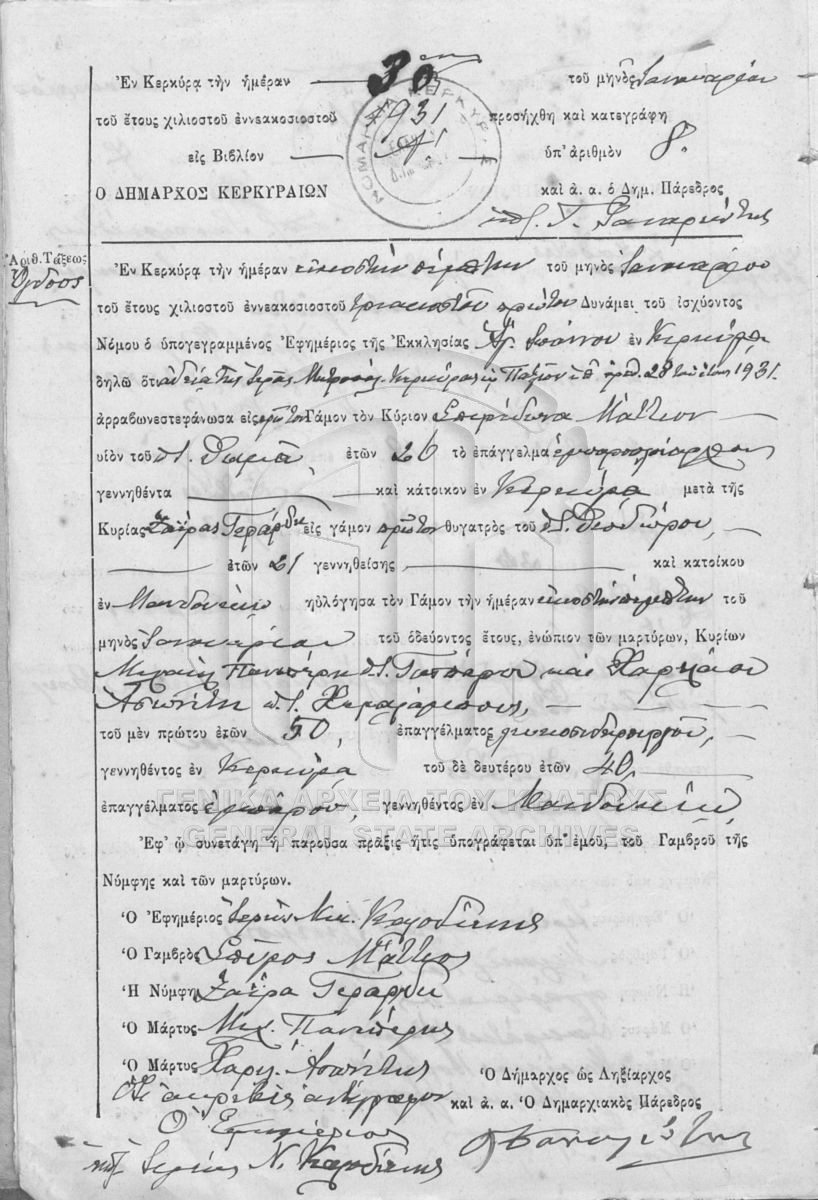 Ἐν Κερκύρᾳ τὴν ἡμέραν 30ην τοῦ μηνὸς Ἰανουαρίου
τοῦ ἔτους χιλιοστοῦ ἐννεακοσιοστοῦ 1931 προσήχθη καὶ κατεγράφη
εἰς Βιβλίον Α' ὑπ' ἀριθμὸν 8.
Ο ΔΗΜΑΡΧΟΣ ΚΕΡΚΥΡΑΙΩΝ καὶ ἀ. α. ὁ Δημ. Πάρεδρος
Ἀριθ. Τάξεως
Ὄγδοος
Ἐν Κερκύρᾳ τὴν ἡμέραν εἰκοστὴν πέμπτην τοῦ μηνὸς Ἰανουαρίου
τοῦ ἔτους χιλιοστοῦ ἐννεακοσιοστοῦ τριακοστοῦ πρώτου Δυνάμει τοῦ ἰσχύοντος
Νόμου ὁ ὑπογεγραμμένος Ἐφημέριος τῆς Ἐκκλησίας Ἁγ. Ἰωάννου ἐν Κερκύρᾳ
δηλῶ ὅτι ἀδείᾳ τῆς Ἱερᾶς Μητροπόλ. Κερκύρας κ Παξῶν ὑπ' ἀριθ. 28 τοῦ ἔτους 1931.
ἀρραβωνεστεφάνωσα εἰς πρῶτον Γάμον τὸν Κύριον Σπυρίδωνα Μάτιον
υἱὸν τοῦ π. Θωμᾶ, ἐτῶν 26 τὸ ἐπάγγελμα
γεννηθέντα καὶ κάτοικον ἐν Κερκύρᾳ μετὰ τῆς
Κυρίας Ζαΐρας Γεράρδη εἰς γάμον πρῶτον θυγατρὸς τοῦ π. Θεοδώρου,
ἐτῶν 21 γεννηθείσης καὶ κατοίκου
ἐν Μανδουκίῳ ηὐλόγησα τὸν Γάμον τὴν ἡμέραν εἰκοστὴν πέμπτην τοῦ
μηνὸς Ἰανουαρίου τοῦ ὁδεύοντος ἔτους, ἐνώπιον τῶν μαρτύρων, Κυρίων
Μιχαὴλ π. καὶ Χαριλάου
π.
τοῦ μὲν πρώτου ἐτῶν 50, ἐπαγγέλματος
γεννηθέντος ἐν Κερκύρᾳ τοῦ δὲ δευτέρου ἐτῶν 40,
ἐπαγγέλματος ἐμπόρου, γεννηθέντος ἐν Μανδουκίῳ,
ΓΕΝΙΚΑ ΑΡΧΕΙΑ ΤΟΥ ΚΡΑΤΟΥΣ
GENERAL STATE ARCHIVES
Ἐφ' ᾧ συνετάγη ἡ παροῦσα πρᾶξις ἥτις ὑπογράφεται ὑπ' ἐμοῦ, τοῦ Γαμβροῦ τῆς
Νύμφης καὶ τῶν μαρτύρων.
Ὁ Ἐφημέριος Ἱερεὺς Νικ.
Ὁ Γαμβρὸς Σπῦρος Μάτιος
Ἡ Νύμφη Ζαΐρα Γεράρδη
Ὁ Μάρτυς Μιχ.
Ὁ Μάρτυς Χαρ.
Ὁ Δήμαρχος ὡς Ληξίαρχος
Ὅτι ἀκριβὲς ἀντίγραφον καὶ ἀ. α. Ὁ Δημαρχιακὸς Πάρεδρος
Ὁ Ἐφημέριος
Ἱερεὺς Ν.